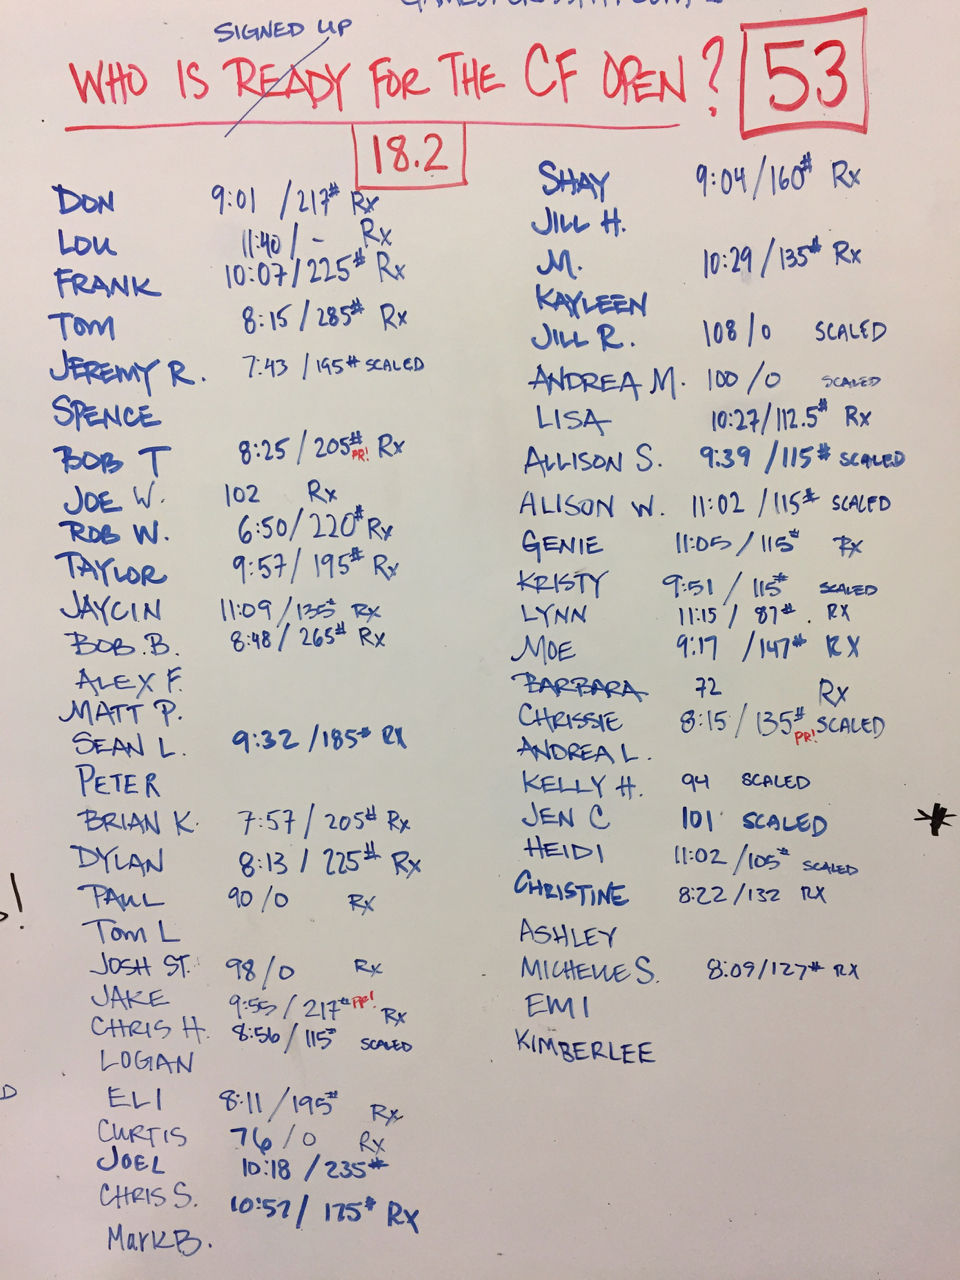 SIGNED UP
WHO IS READY FOR THE CF OPEN? 53
18.2
DON 9:01 / 217# Rx
LOU 11:40 / - Rx
FRANK 10:07 / 225# Rx
TOM 8:15 / 285# Rx
JEREMY R. 7:43 / 195# SCALED
SPENCE
BOB T 8:25 / 205# PR! Rx
JOE W. 102 Rx
ROB W. 6:50 / 220# Rx
TAYLOR 9:57 / 195# Rx
JAYCIN 11:09 / 135# Rx
BOB.B. 8:48 / 265# Rx
ALEX F.
MATT P.
SEAN L. 9:32 / 185# RX
PETER
BRIAN K. 7:57 / 205# Rx
DYLAN 8:13 / 225# Rx
PAUL 90 / 0 Rx
Tom L
JOSH ST. 98 / 0 Rx
JAKE 9:55 / 217# PR! Rx
CHRIS H. 8:56 / 115# SCALED
LOGAN
ELI 8:11 / 195# Rx
CURTIS 76 / 0 Rx
JOEL 10:18 / 235#
CHRIS S. 10:57 / 175# RX
MarkB.
SHAY 9:04 / 160# Rx
JILL H.
M. 10:29 / 135# Rx
KAYLEEN
JILL R. 108 / 0 SCALED
ANDREA M. 100 / 0 SCALED
LISA 10:27 / 112.5# Rx
ALLISON S. 9:39 / 115# SCALED
ALISON W. 11:02 / 115# SCALED
GENIE 11:05 / 115# Rx
KRISTY 9:51 / 115# SCALED
LYNN 11:15 / 87# . RX
MOE 9:17 / 147# RX
BARBARA 72 Rx
CHRISSIE 8:15 / 135# PR! SCALED
ANDREA L.
KELLY H. 94 SCALED
JEN C 101 SCALED
HEIDI 11:02 / 105# SCALED
CHRISTINE 8:22 / 132 RX
ASHLEY
MICHELLE S. 8:09 / 127# RX
EMI
KIMBERLEE